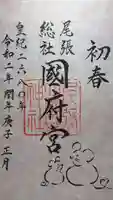 初春
尾張
総社
國府宮
皇紀二六八〇年
令和二年 閏年 庚子 正月